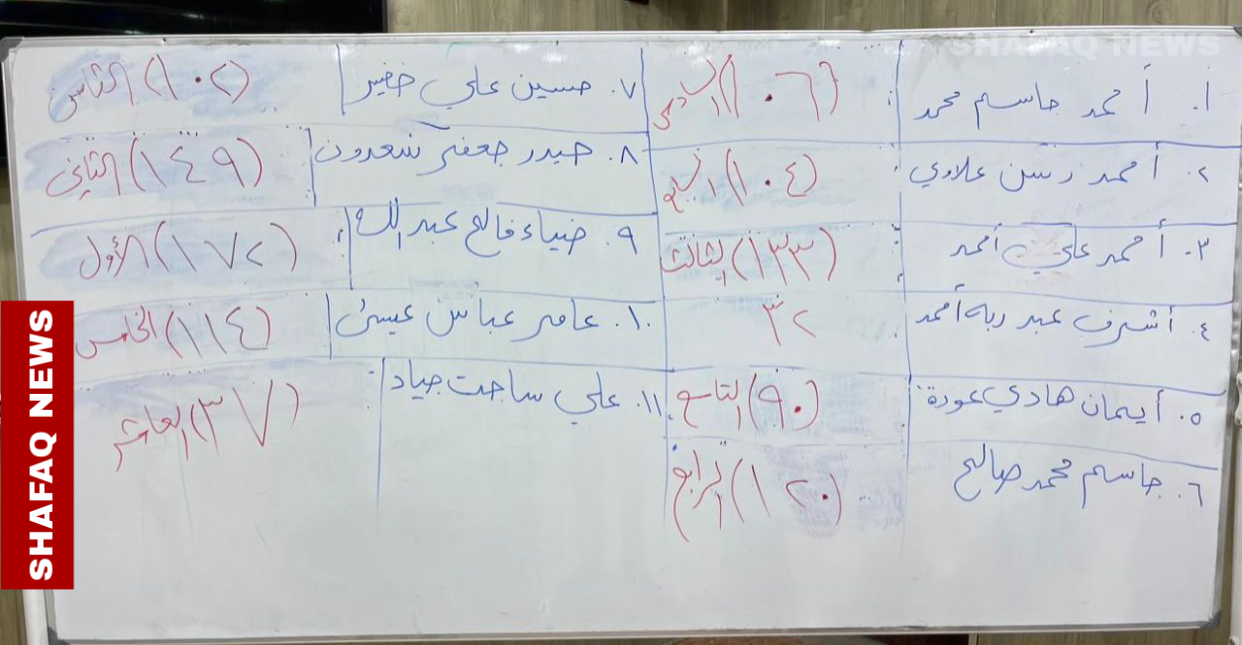 SHAFAQ NEWS
١. أحمد جاسم محمد : (١٠٦) السادس
٢. أحمد رسن علاوي : (١٠٤) السابع
٣. أحمد علي أحمد : (١٣٣) الثالث
٤. أشرف عبد ربه أحمد : ٣٢
٥. أيمان هادي عودة : (٩٠) التاسع
٦. جاسم محمد صالح : (١٢٠) الرابع
٧. حسين علي خضير (١٠٢) الثامن
٨. حيدر جعفر سعدون (١٤٩) الثاني
٩. ضياء فالح عبد الله : (١٧٢) الأول
١٠. عامر عباس عيسى (١١٤) الخامس
١١. علي ساجت جياد (٣٧) العاشر
SHAFAQ NEWS